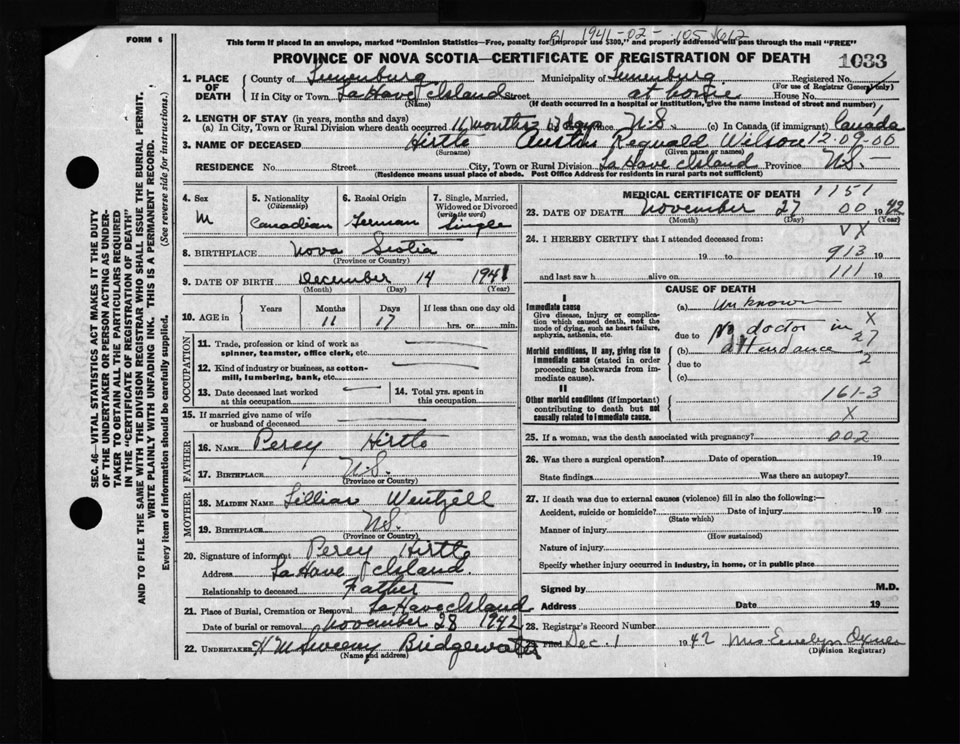 FORM 6
B1 1941-02-105162
This form if placed in an envelope, marked "Dominion Statistics—Free, penalty for improper use $300," and properly addressed will pass through the mail "FREE"
PROVINCE OF NOVA SCOTIA—CERTIFICATE OF REGISTRATION OF DEATH 1033
1. PLACE OF DEATH County of Lunenburg Municipality of Lunenburg Registered No.
(For use of Registrar General only)
If in City or Town LaHave Island Street at home House No.
(Name) (If death occurred in a hospital or institution, give the name instead of street and number)
2. LENGTH OF STAY (in years, months and days)
(a) In City, Town or Rural Division where death occurred 11 months 17 days Province N.S. (c) In Canada (if immigrant) Canada
3. NAME OF DECEASED Hirtle Austin Reginald Wilson 12-09-00
(Surname) (Given name or names)
RESIDENCE No. Street City, Town or Rural Division LaHave Island Province N.S.
(Residence means usual place of abode. Post Office Address for residents in rural parts not sufficient)
4. Sex 5. Nationality (Citizenship) 6. Racial Origin 7. Single, Married, Widowed or Divorced (write the word)
M Canadian German Single
8. BIRTHPLACE Nova Scotia
(Province or Country)
9. DATE OF BIRTH December 14 1941
(Month) (Day) (Year)
10. AGE in Years Months Days If less than one day old
11 17 hrs. or min.
OCCUPATION
11. Trade, profession or kind of work as spinner, teamster, office clerk, etc.
12. Kind of industry or business, as cotton-mill, lumbering, bank, etc.
13. Date deceased last worked at this occupation
14. Total yrs. spent in this occupation
15. If married give name of wife or husband of deceased
FATHER
16. NAME Percy Hirtle
17. BIRTHPLACE N.S.
(Province or Country)
MOTHER
18. MAIDEN NAME Lillian Wentzell
19. BIRTHPLACE N.S.
(Province or Country)
20. Signature of informant Percy Hirtle
Address LaHave Island
Relationship to deceased Father
21. Place of Burial, Cremation or Removal LaHave Island
Date of burial or removal November 28 1942
22. UNDERTAKER H M Sweeny Bridgewater
(Name and address)
MEDICAL CERTIFICATE OF DEATH 1151
23. DATE OF DEATH November 27 00 1942
(Month) (Day) (Year)
VX
24. I HEREBY CERTIFY that I attended deceased from:
19 to 913 19
and last saw h alive on 111 19
CAUSE OF DEATH
I
Immediate cause
Give disease, injury or complication which caused death, not the mode of dying, such as heart failure, asphyxia, asthenia, etc.
(a) Unknown X
due to No doctor in 27
Morbid conditions, if any, giving rise to immediate cause (stated in order proceeding backwards from immediate cause).
(b) attendance 2
due to
(c)
II
Other morbid conditions (if important) contributing to death but not causally related to immediate cause.
161-3
X
25. If a woman, was the death associated with pregnancy? 002
26. Was there a surgical operation? Date of operation 19
State findings Was there an autopsy?
27. If death was due to external causes (violence) fill in also the following:—
Accident, suicide or homicide? Date of injury 19
(State which)
Manner of injury
(How sustained)
Nature of injury
Specify whether injury occurred in industry, in home, or in public place
Signed by M.D.
Address Date 19
28. Registrar's Record Number
Filed Dec. 1 1942 Mrs Evelyn Oxner
(Division Registrar)
SEC. 46—VITAL STATISTICS ACT MAKES IT THE DUTY
OF THE UNDERTAKER OR PERSON ACTING AS UNDER-
TAKER TO OBTAIN ALL THE PARTICULARS REQUIRED
IN THE "CERTIFICATE OF REGISTRATION OF DEATH"
AND TO FILE THE SAME WITH THE DIVISION REGISTRAR WHO SHALL ISSUE THE BURIAL PERMIT.
WRITE PLAINLY WITH UNFADING INK. THIS IS A PERMANENT RECORD.
Every item of information should be carefully supplied. (See reverse side for instructions.)